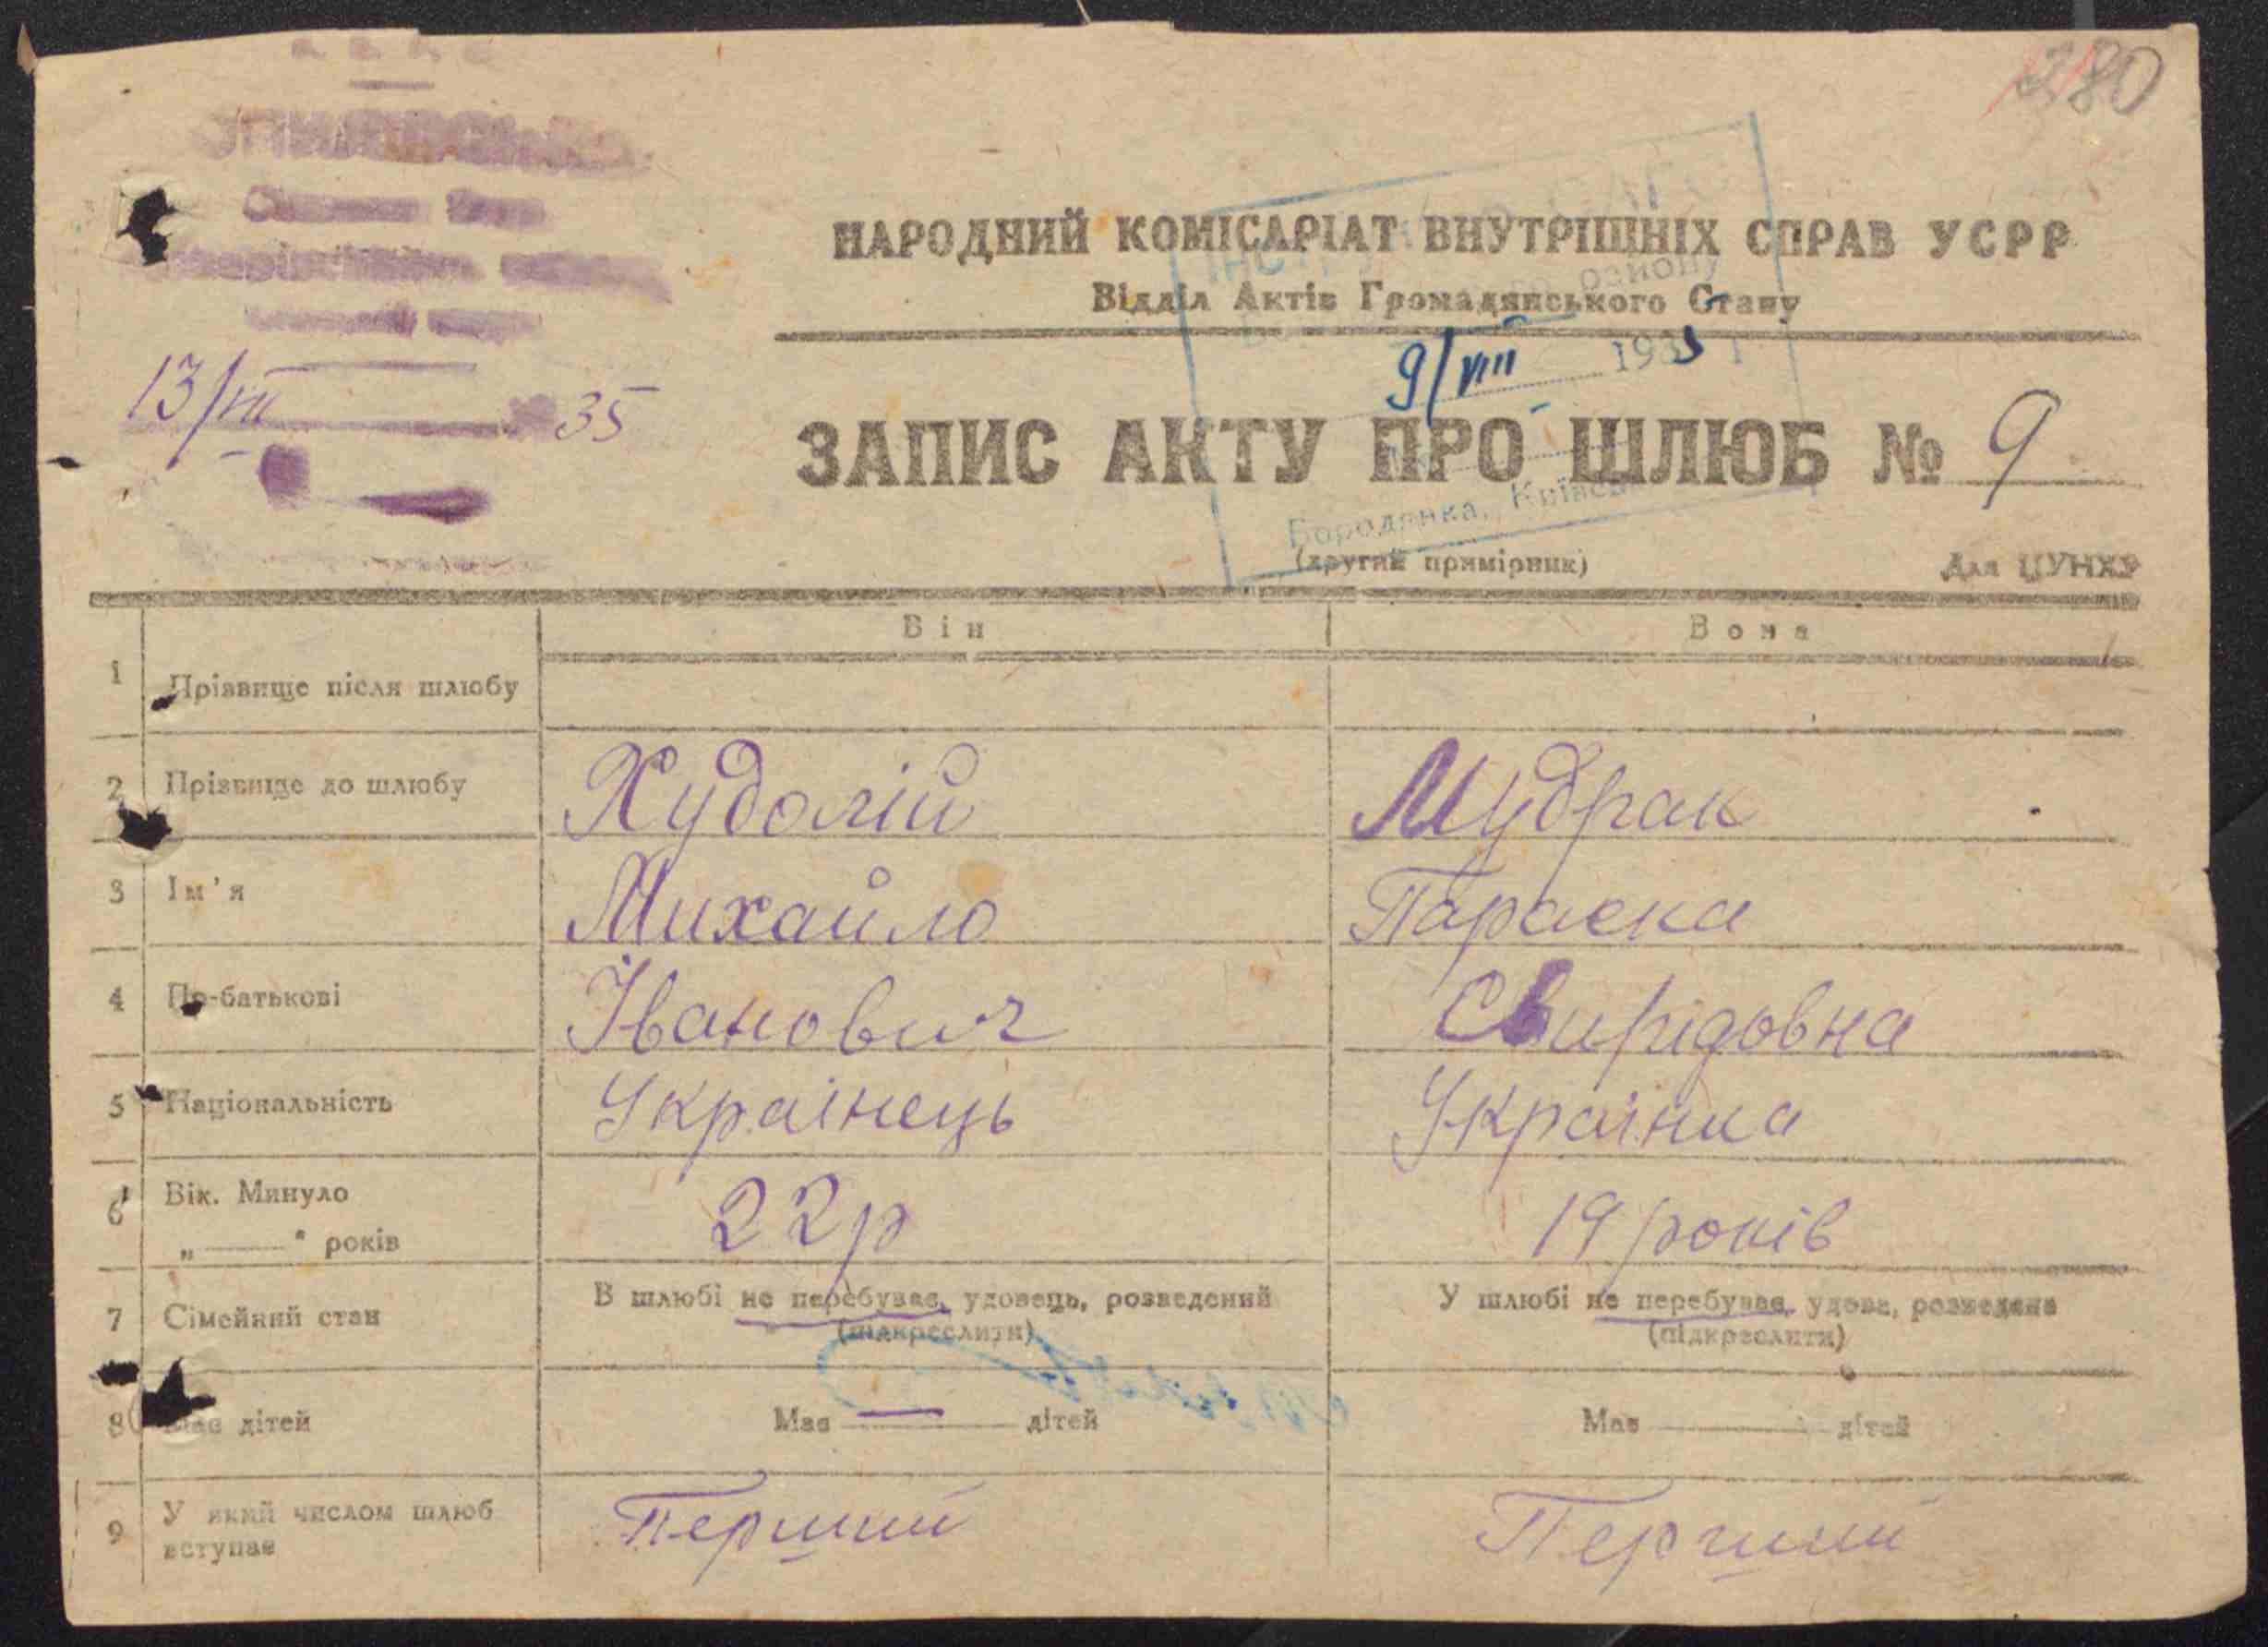 280
НАРОДНИЙ КОМІСАРІАТ ВНУТРІШНІХ СПРАВ УСРР
Відділ Актів Громадянського Стану
району
9/VIII 1935 г
13/VII 35
ЗАПИС АКТУ ПРО ШЛЮБ № 9
Бородянка,
(другий примірник) Для ЦУНХУ
Він Вона
1 Прізвище після шлюбу
2 Прізвище до шлюбу Худолій Мудрак
3 Ім'я Михайло Параска
4 По-батькові Іванович Свирідовна
5 Національність Українець Українка
6 Вік. Минуло 22р 19 років
„ — " років
7 Сімейний стан В шлюбі не перебуває, удовець, розведений У шлюбі не перебуває, удова, розведена
(підкреслити) (підкреслити)
8 Має дітей Має — дітей Має дітей
9 У який числом шлюб вступає Перший Перший